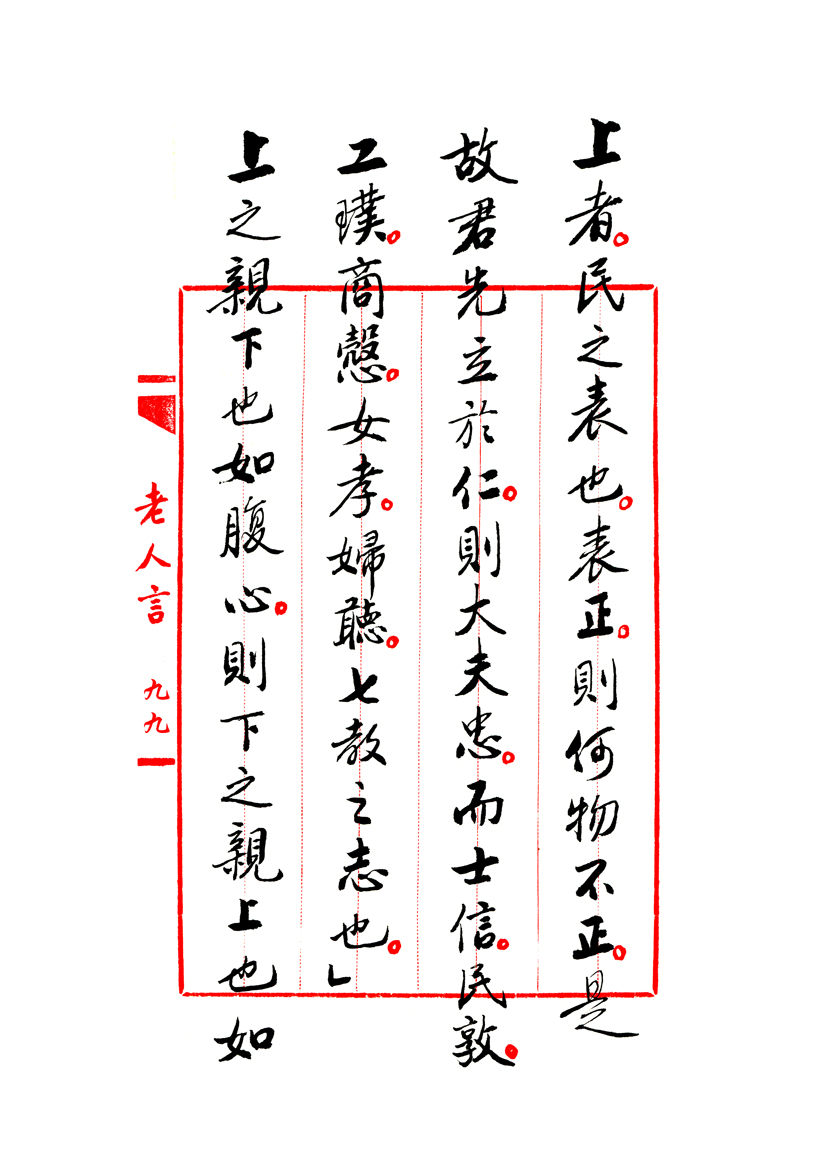 上者。民之表也。表正。則何物不正。是
故君先立於仁。則大夫忠。而士信。民敦。
工璞。商愨。女孝。婦聽。七教之志也。」
上之親下也如腹心。則下之親上也如
老人言 九九